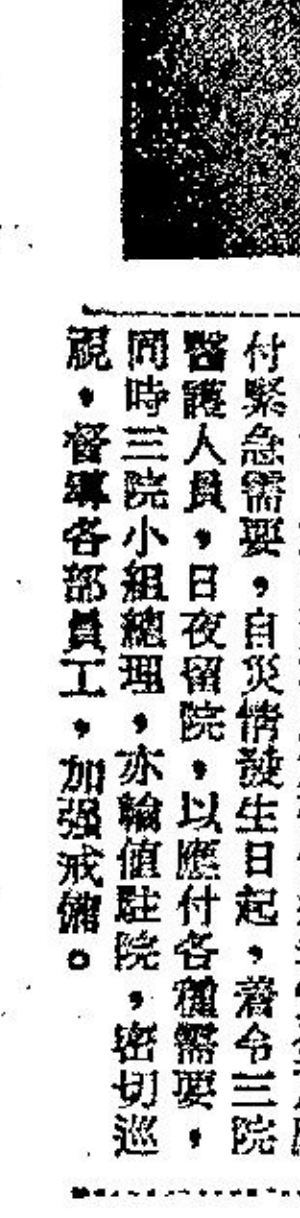 付緊急需要，自災情發生日起，着令三院
醫護人員，日夜留院，以應付各種需要，
同時三院小組總理，亦輪值駐院，密切巡
視，督導各部員工，加强戒備。